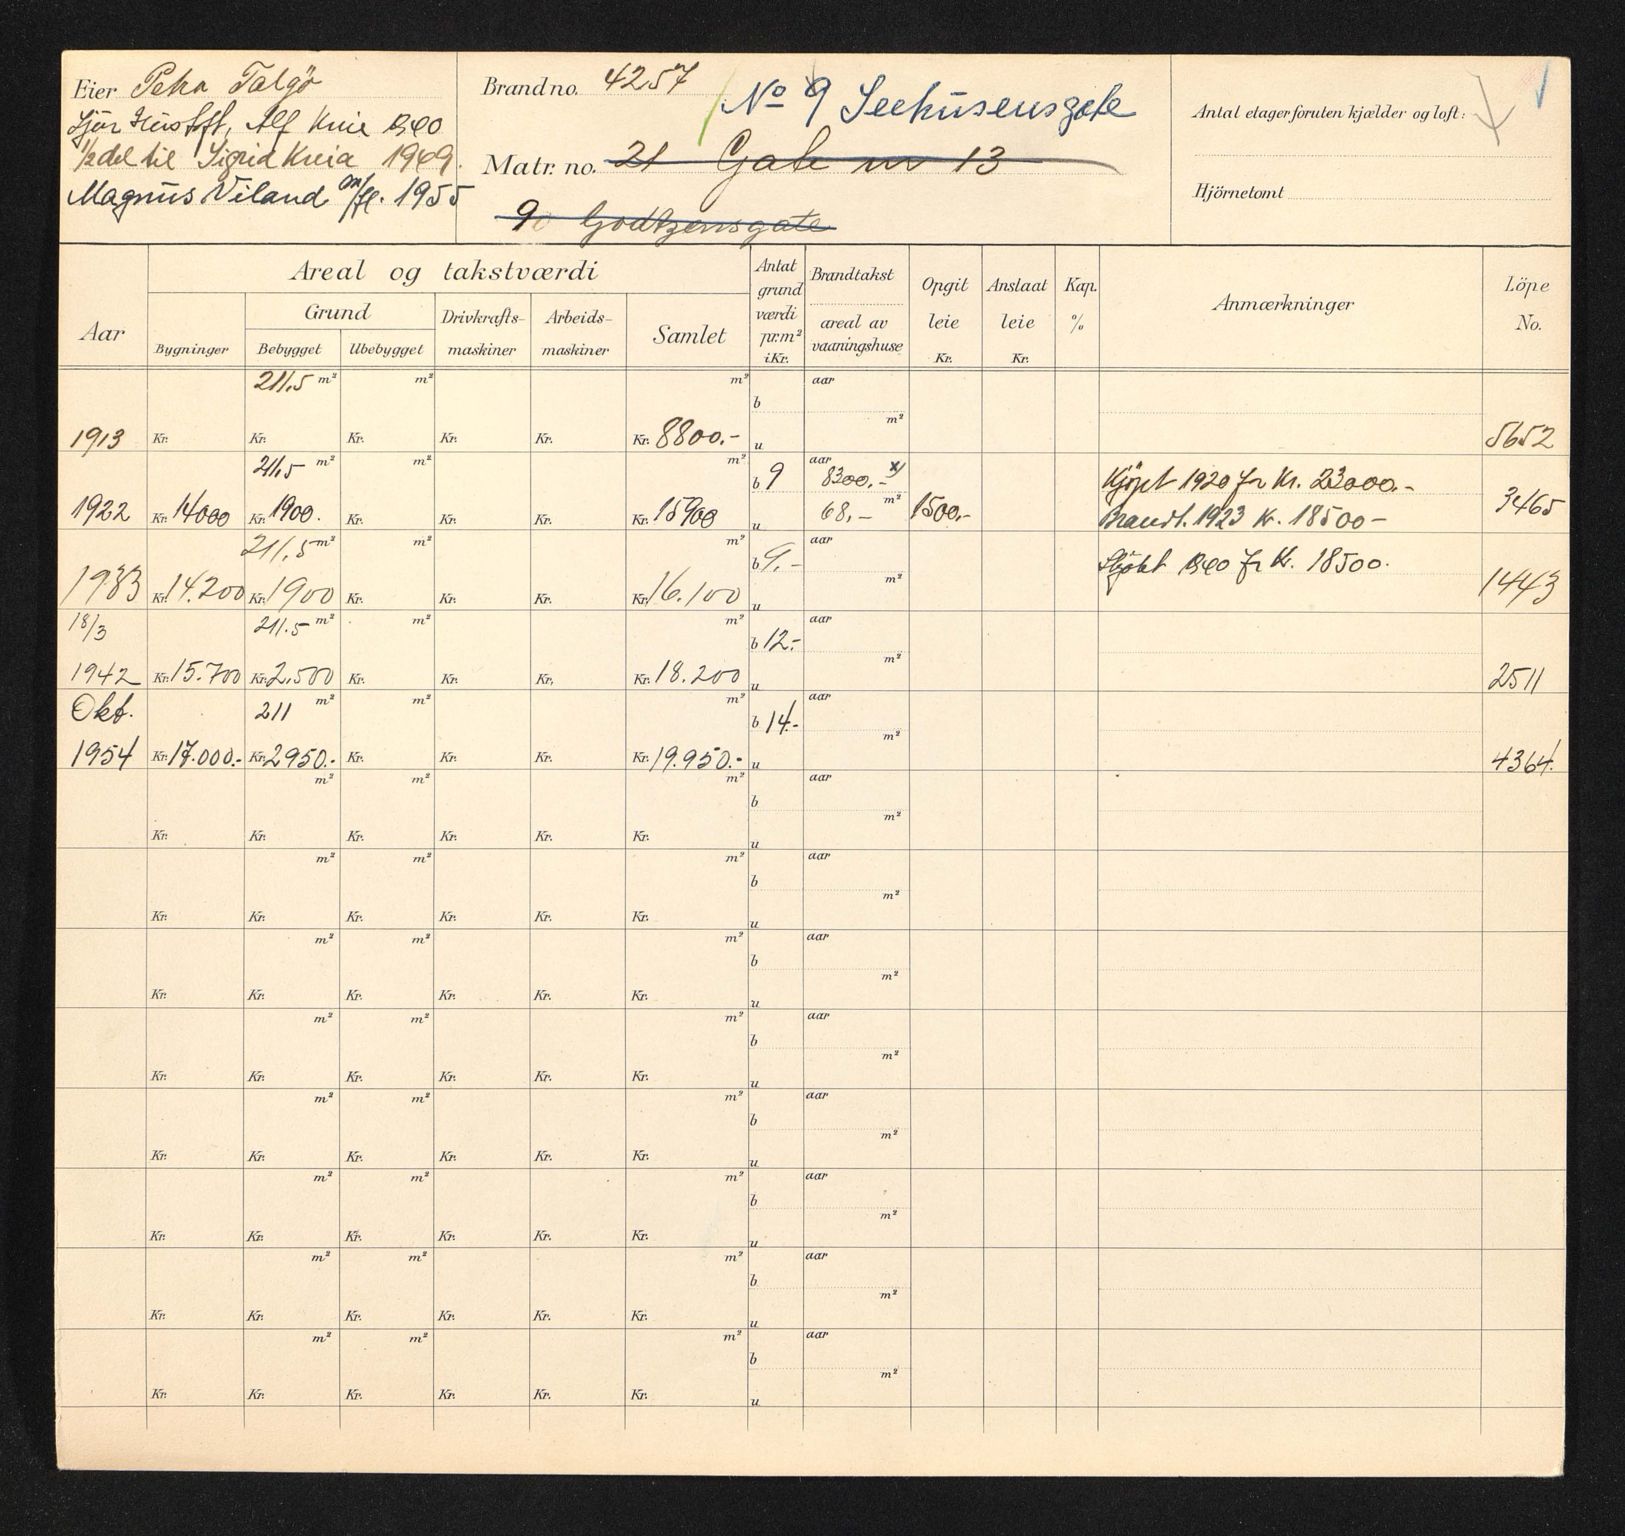 Eier Petra Talgö
Alf Kvie
1/2 del til Sigrid Kvia 1949.
Magnus Viland m/fl. 1955
Brand no. 4257
No 9 Seehusensgate
Matr. no. 21 Gate nr 13
9 Godtzensgate
Antal etager foruten kjælder og loft:
Hjörnetomt
Aar
Areal og takstværdi
Bygninger
Grund
Bebygget Ubebygget
Drivkrafts-
maskiner
Arbeids-
maskiner
Samlet
Antat
grund
værdi
pr.m²
i Kr.
Brandtakst
areal av
vaaningshuse
Opgit
leie
Kr.
Anslaat
leie
Kr.
Kap.
%
Anmærkninger
Löpe
No.
211,5 m² m² m² aar
b
m²
1913 Kr. Kr. Kr. Kr. Kr. Kr. 8800.- u 5652
211,5 m² m² m² b 9 aar 8300.- x) Kjöpt 1920 for Kr. 23000.-
1922 Kr. 14000 Kr. 1900. Kr. Kr. Kr. Kr. 15900 u 68,- m² 1500.- Brandt. 1923 kr. 18500- 3465
211,5 m² m² m² b 9,- aar for Kr. 18500.
m²
1933 Kr. 14.200 Kr. 1900 Kr. Kr. Kr. Kr. 16.100 u 1443
18/3 211.5 m² m² m² b 12.- aar
m²
1942 Kr. 15.700 Kr. 2.500 Kr. Kr. Kr. Kr. 18.200 u 2511
Okt. 211 m² m² m² b 14.- aar
m²
1954 Kr. 17.000.- Kr. 2950.- Kr. Kr. Kr. Kr. 19.950.- u 4364.
m² m² m² aar
b
m²
Kr. Kr. Kr. Kr. Kr. Kr. u
m² m² m² aar
b
m²
Kr. Kr. Kr. Kr. Kr. Kr. u
m² m² m² aar
b
m²
Kr. Kr. Kr. Kr. Kr. Kr. u
m² m² m² aar
b
m²
Kr. Kr. Kr. Kr. Kr. Kr. u
m² m² m² aar
b
m²
Kr. Kr. Kr. Kr. Kr. Kr. u
m² m² m² aar
b
m²
Kr. Kr. Kr. Kr. Kr. Kr. u
m² m² m² aar
b
m²
Kr. Kr. Kr. Kr. Kr. Kr. u
m² m² m² aar
b
m²
Kr. Kr. Kr. Kr. Kr. Kr. u